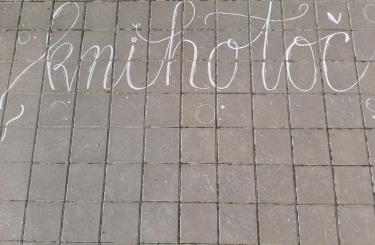 knihotoč